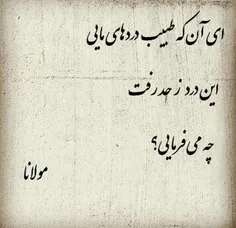 ای آن که طبیب دردهای مایی
این درد ز حد رفت
چه می فرمایی؟
مولانا